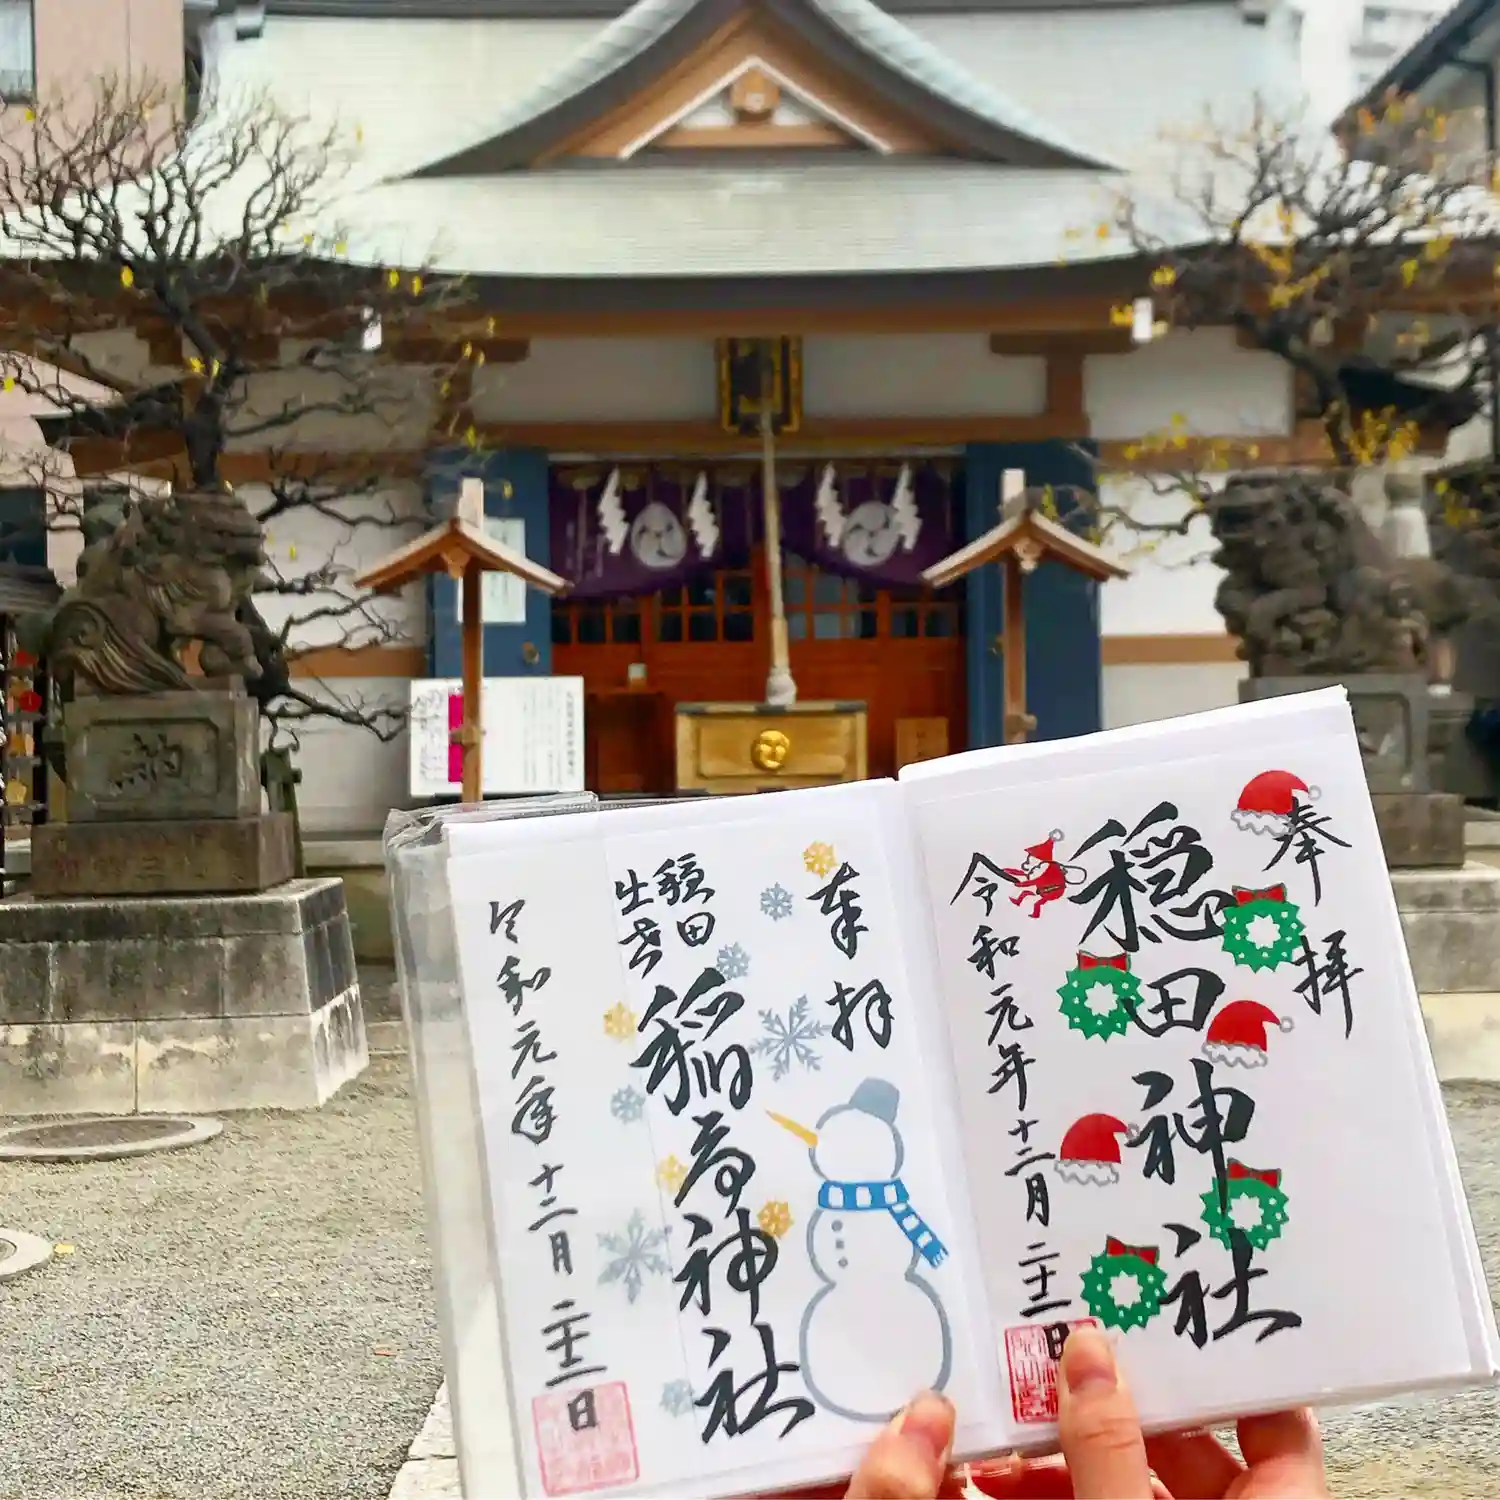 奉拝
穏田神社
令和元年十二月二十一日
奉拝
穏田
出世
稲荷神社
令和元年十二月二十一日
納